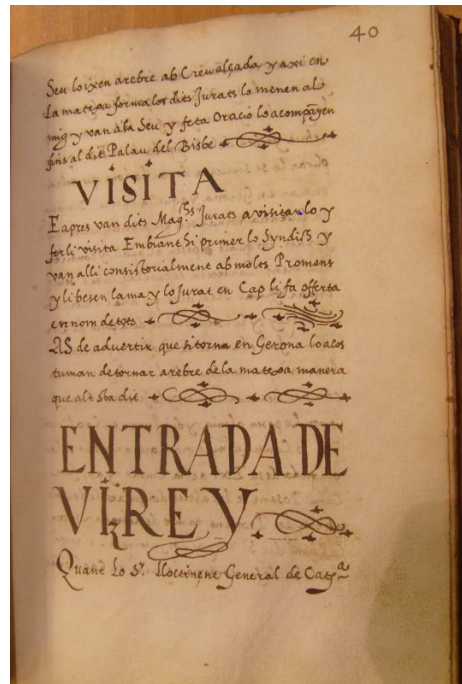 40
Seu lo ixen arebre ab Creu alçada y axi en
la matexa forma los dits Jurats lo menen al
mig y van ala Seu y feta Oracio lo acompañen
fins al dit Palau del Bisbe
VISITA
E apres van dits Mag.chs Jurats a visitar lo y
ferli visita Embiant hi primer lo Syndich y
van alli consistorialment ab molts Promens
y li besen la ma y lo Jurat en Cap li fa offerta
en nom de tots
AS de advertir que si torna en Gerona lo acos
tuman de tornar arebre de la matexa manera
que alt sta dit
ENTRADA DE
VIREY
Quant Lo S.r Lloctinent General de Cat.a